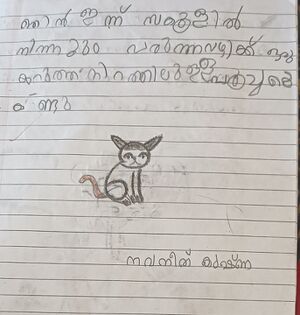 ഞാൻ ഇന്ന് സകൂളിൽ
നിന്ന് വരുന്നവഴിക്ക് ഒരു
കറുത്ത നിറത്തിലുള്ള
കണ്ടു
നവനീത് കൃഷ്ണ